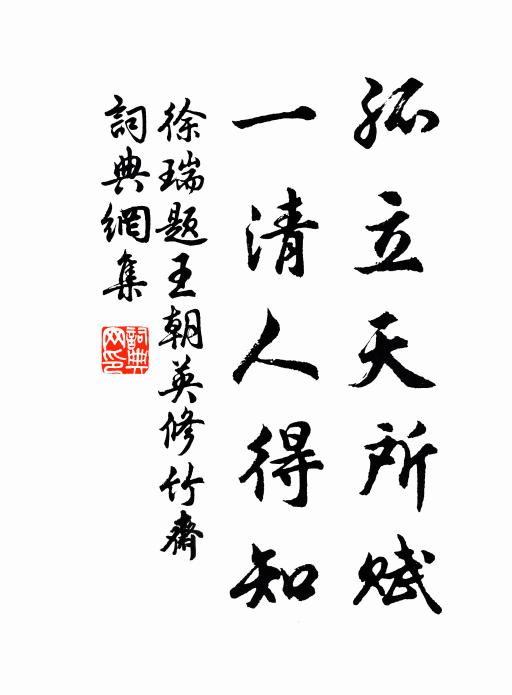 孤立天所賦
一清人得知
徐瑞题王朝英修竹齋
詞典網集
詞典网印